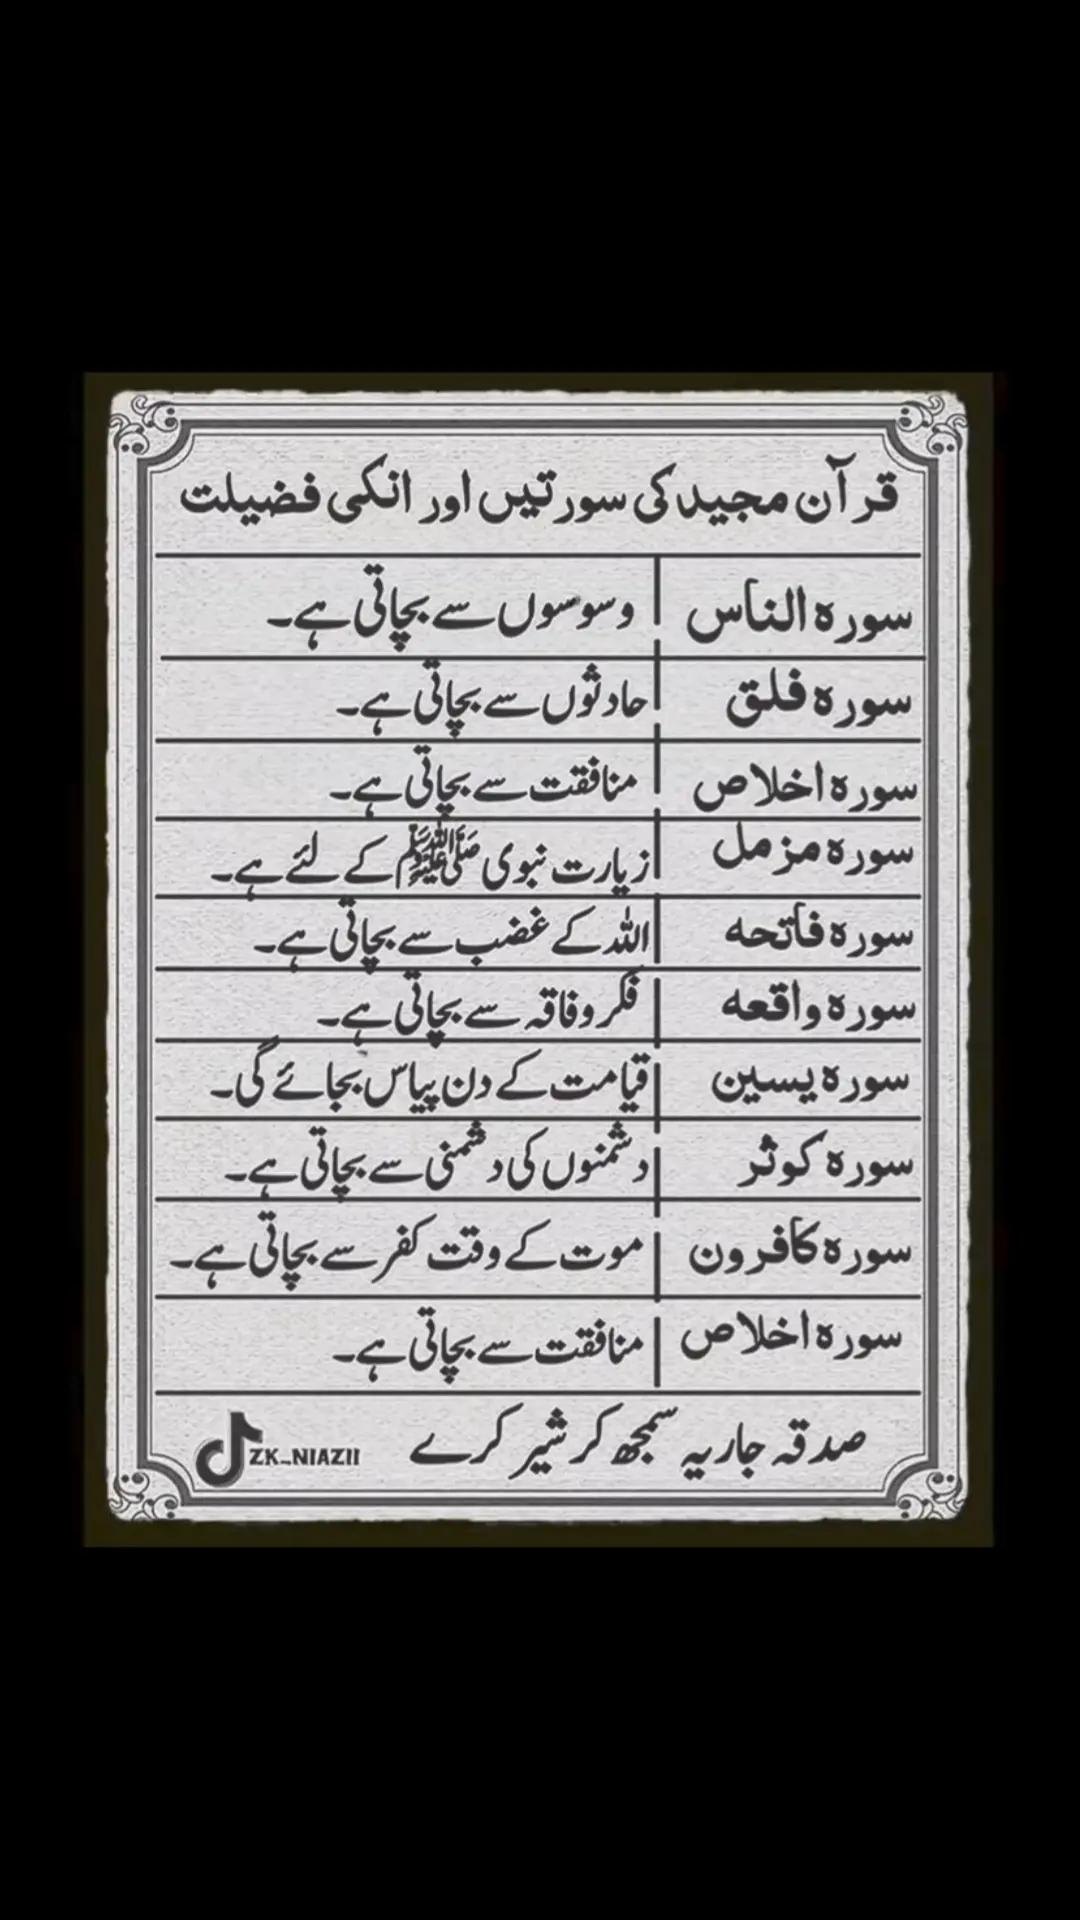 قرآن مجید کی سورتیں اور انکی فضیلت
سورہ الناس | وسوسوں سے بچاتی ہے۔
سورہ فلق | حادثوں سے بچاتی ہے۔
سورہ اخلاص | منافقت سے بچاتی ہے۔
سورہ مزمل | زیارت نبوی ﷺ کے لئے ہے۔
سورہ فاتحہ | اللہ کے غضب سے بچاتی ہے۔
سورہ واقعہ | فکر و فاقہ سے بچاتی ہے۔
سورہ یسین | قیامت کے دن پیاس بجائے گی۔
سورہ کوثر | دشمنوں کی دشمنی سے بچاتی ہے۔
سورہ کافرون | موت کے وقت کفر سے بچاتی ہے۔
سورہ اخلاص | منافقت سے بچاتی ہے۔
صدقہ جاریہ سمجھ کر شیر کرے
ZK_NIAZII